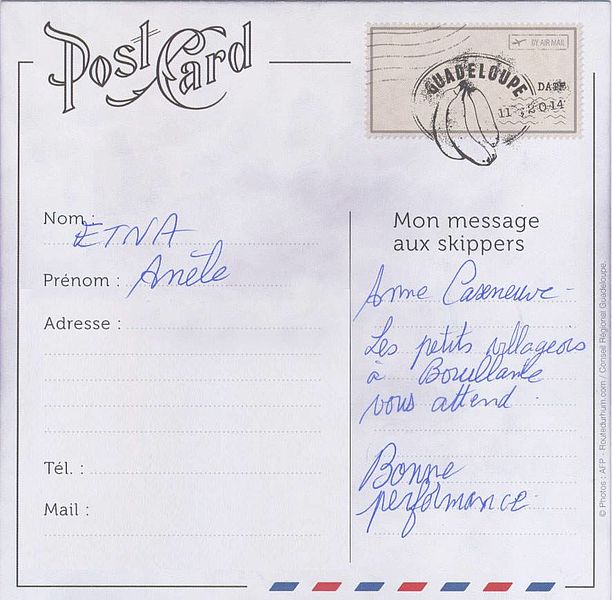 Post Card
BY AIR MAIL
GUADELOUPE
DATE
11, 2014
Nom :
ETNA
Prénom : Anèle
Adresse :
Tél. :
Mail :
Mon message
aux skippers
Anne Caseneuve -
Les petits villageois
à Bouillante
vous attend .
Bonne
performance.
© Photos : AFP - Routedurhum.com / Conseil Régional Guadeloupe.